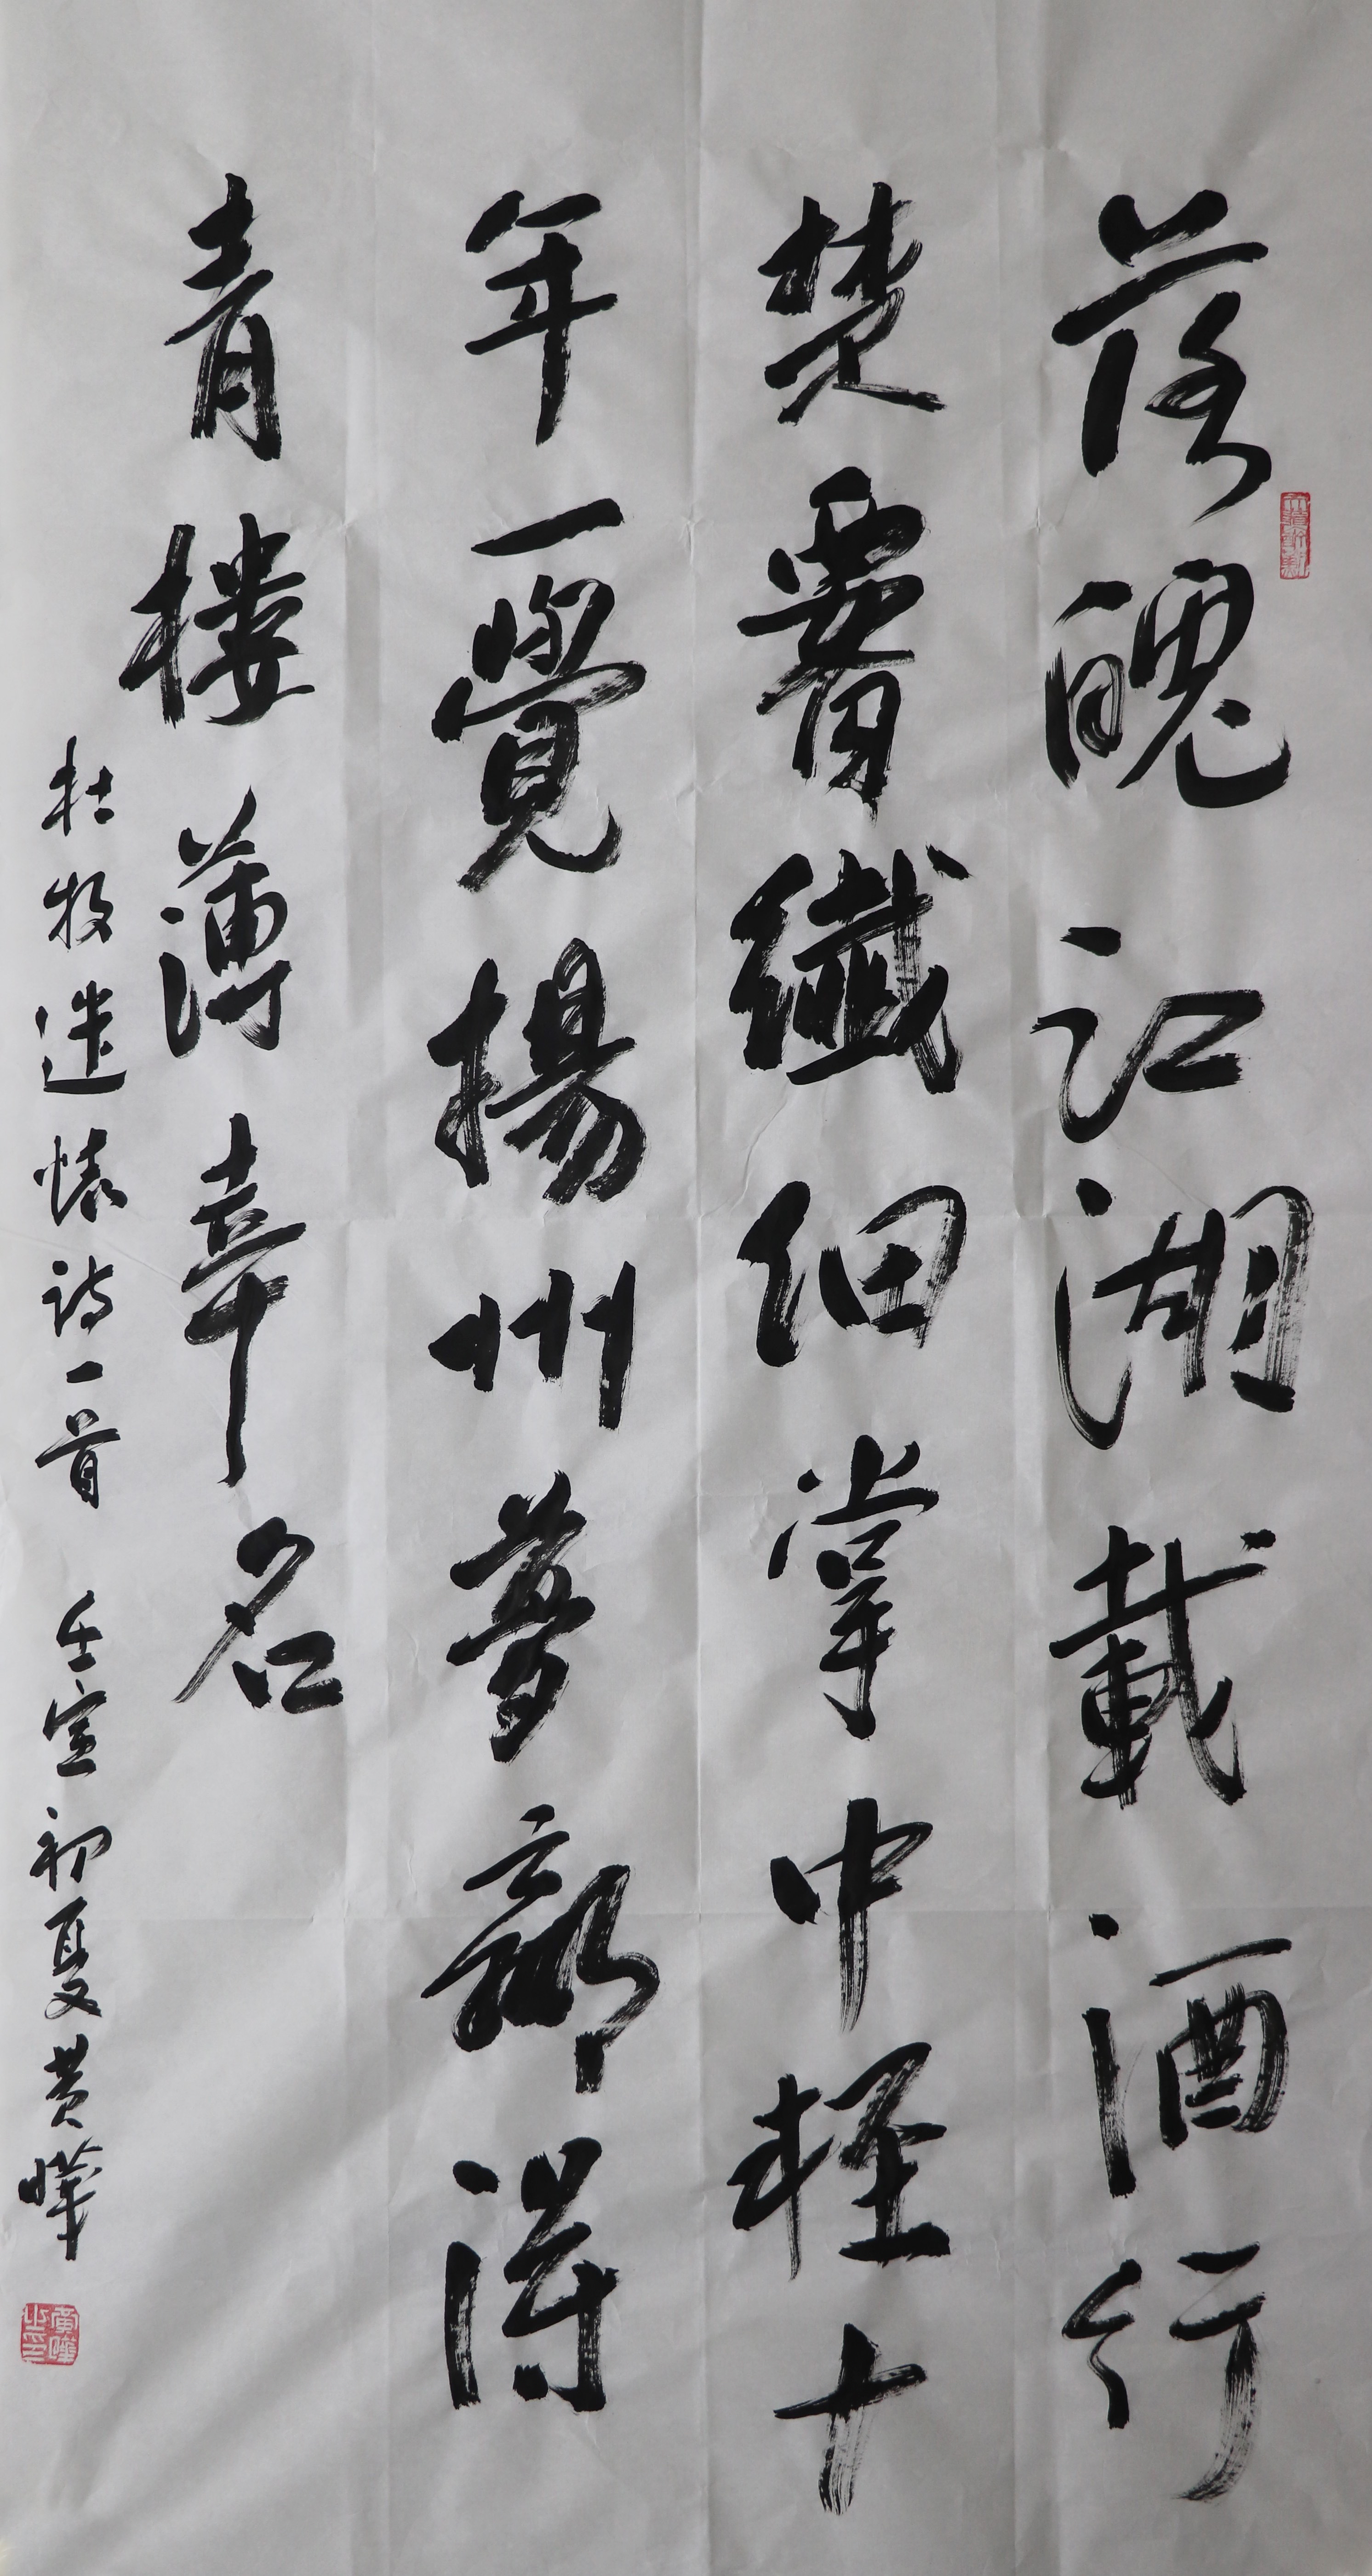 落魄江湖載酒行
楚腰纖細掌中輕十
年一覺揚州夢贏得
青樓薄幸名
杜牧遣懷詩一首 壬寅初夏黃曄
黃曄之印